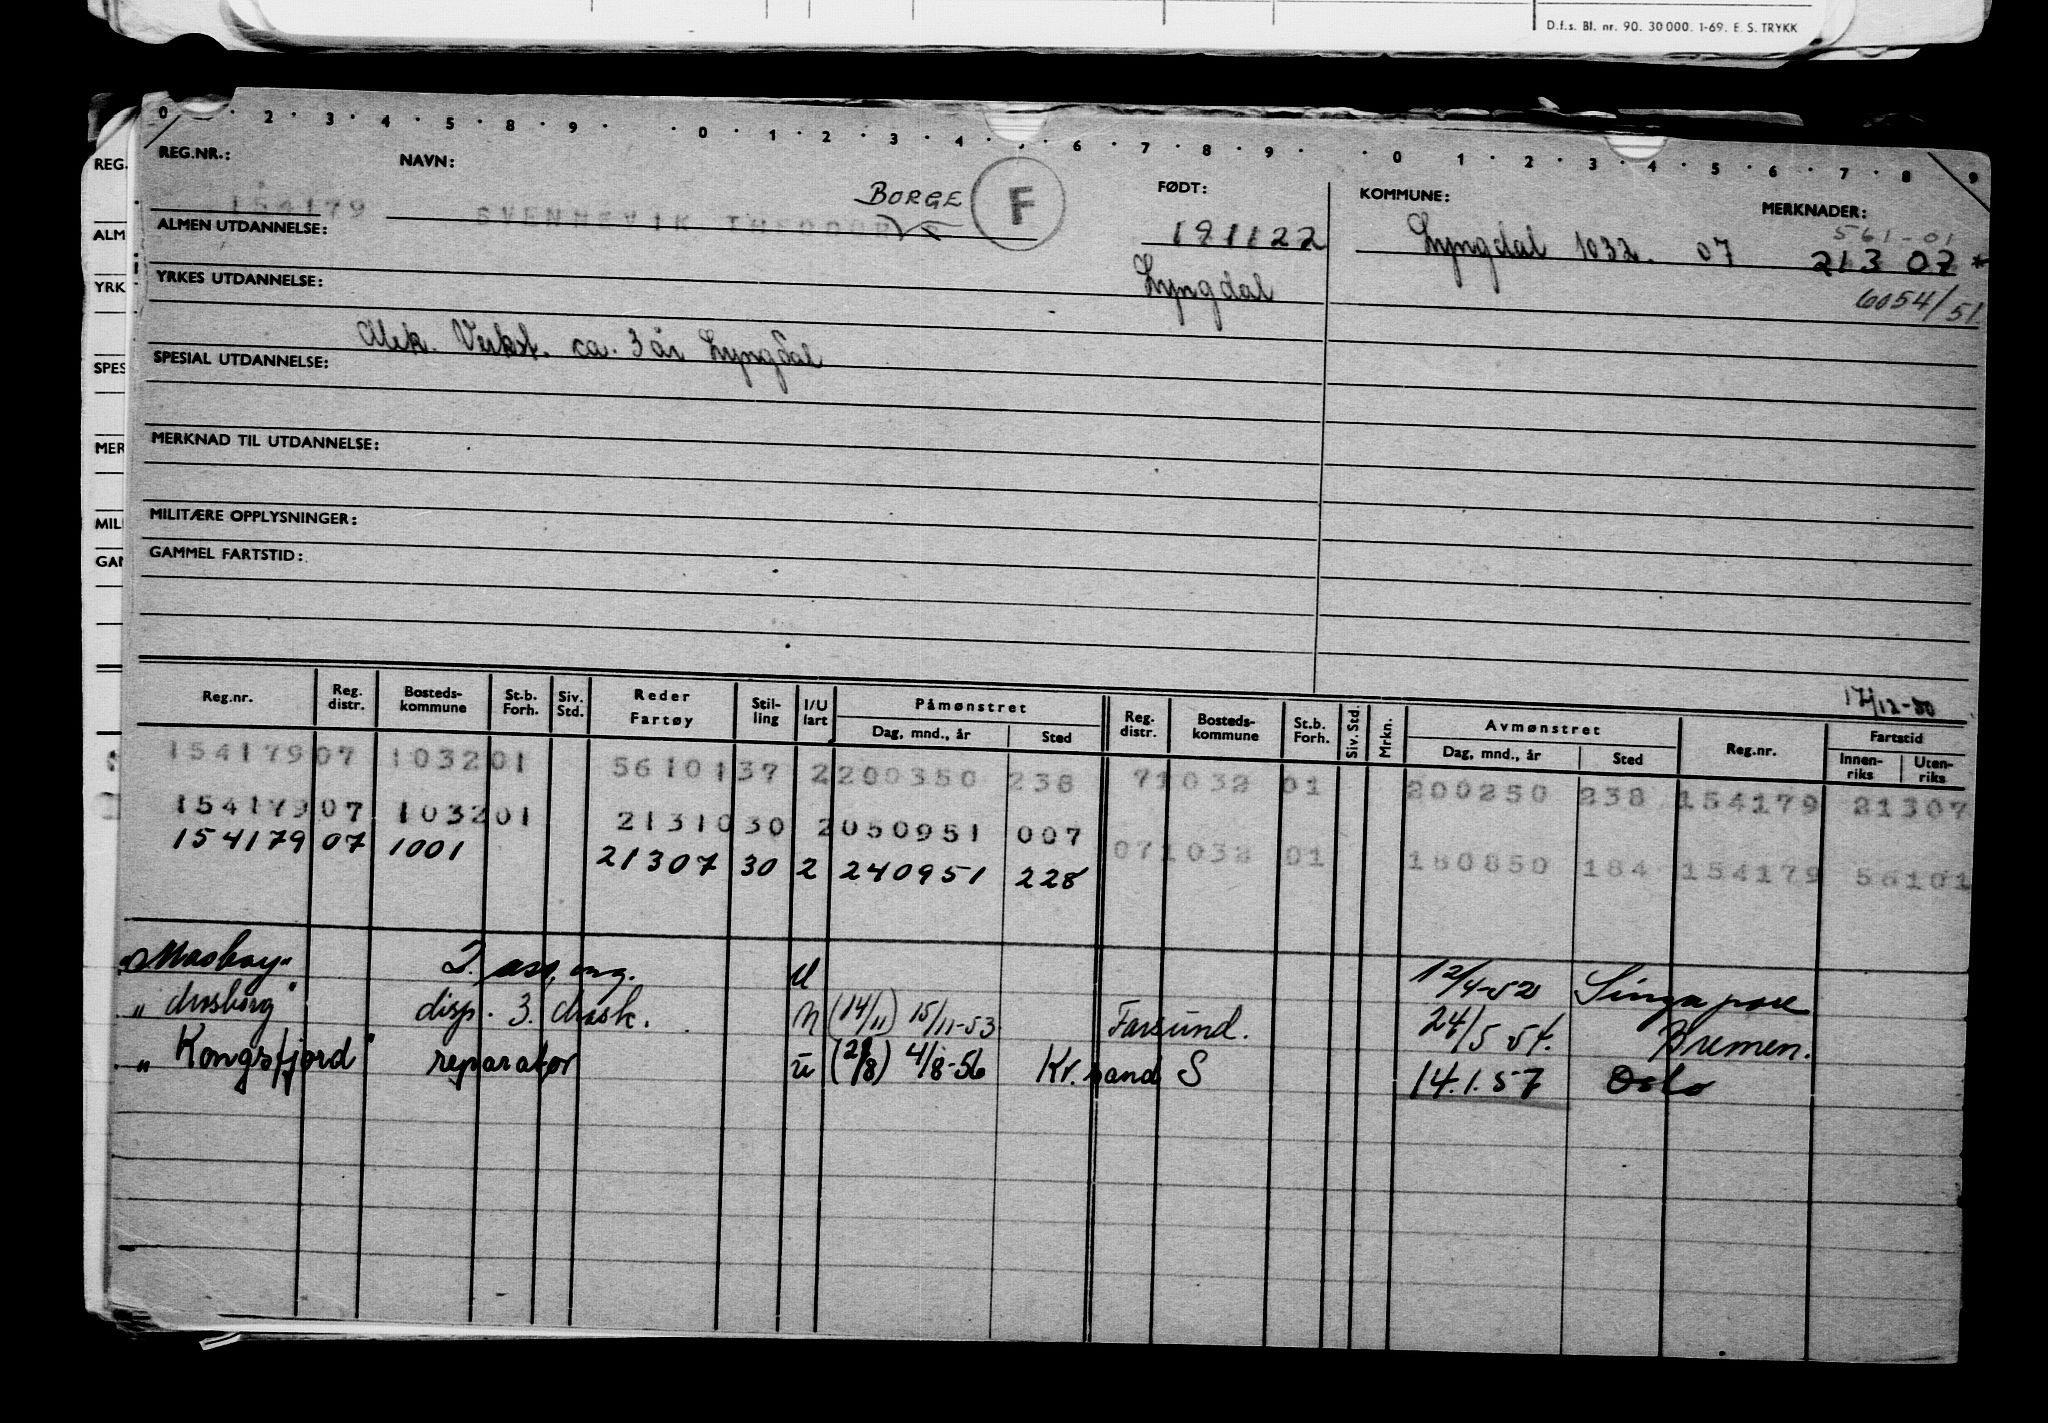 D.f.s. Bl. nr. 90. 30 000. 1-69. E. S. TRYKK
0 · 2 · 3 · 4 · 5 · 8 · 9 · · 0 · 1 · 2 · 3 · 4 · · 6 · 7 · 8 · 9 · · 0 · 1 · 2 · 3 · 4 · 5 · 6 · 7 · 8 · 9
REG.NR.: NAVN: FØDT: KOMMUNE: MERKNADER:
BORGE F
154179 SVENNEVIK THEODOR 191122 Lyngdal 1032. 07 561-01
21307*
ALMEN UTDANNELSE:
Lyngdal 6054/51
YRKES UTDANNELSE:
Mek. Verkst. ca. 3 år Lyngdal
SPESIAL UTDANNELSE:
MERKNAD TIL UTDANNELSE:
MILITÆRE OPPLYSNINGER:
GAMMEL FARTSTID:
17/12-80
Reg.nr. Reg. distr. Bosteds-kommune St.b. Forh. Siv. Std. Reder Fartøy Stil-ling I/U fart Påmønstret Dag, mnd., år Sted Reg-distr. Bosteds-kommune St.b. Forh. Siv. Std. Mrkn. Avmønstret Dag, mnd., år Sted Reg.nr. Fartstid Innen-riks Uten-riks
154179 07 1032 01 56101 37 2 200350 238 7 1032 01 200250 238 154179 21307
154179 07 1032 01 21310 30 2 050951 007
154179 07 1001 21307 30 2 240951 228 07 1032 01 180850 184 154179 56101
2. ass. ing. U 12/4-52 Singapore
"Mosborg" disp. 3. mask. (14/11) 15/11-53 Farsund. 24/5 54. Bremen.
"Kongsfjord" reparatør u 4/8-56 Kr.sand S 14.1.57 Oslo